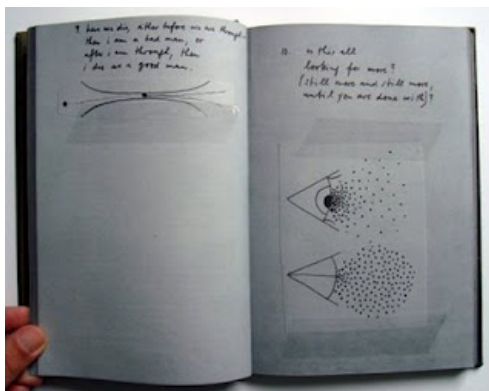 9. here we die, either before we are through,
then i am a bad man, or
after i am through, then
i die as a good man.
10. is this all
looking for more?
(still more and still more,
until you are done with)?